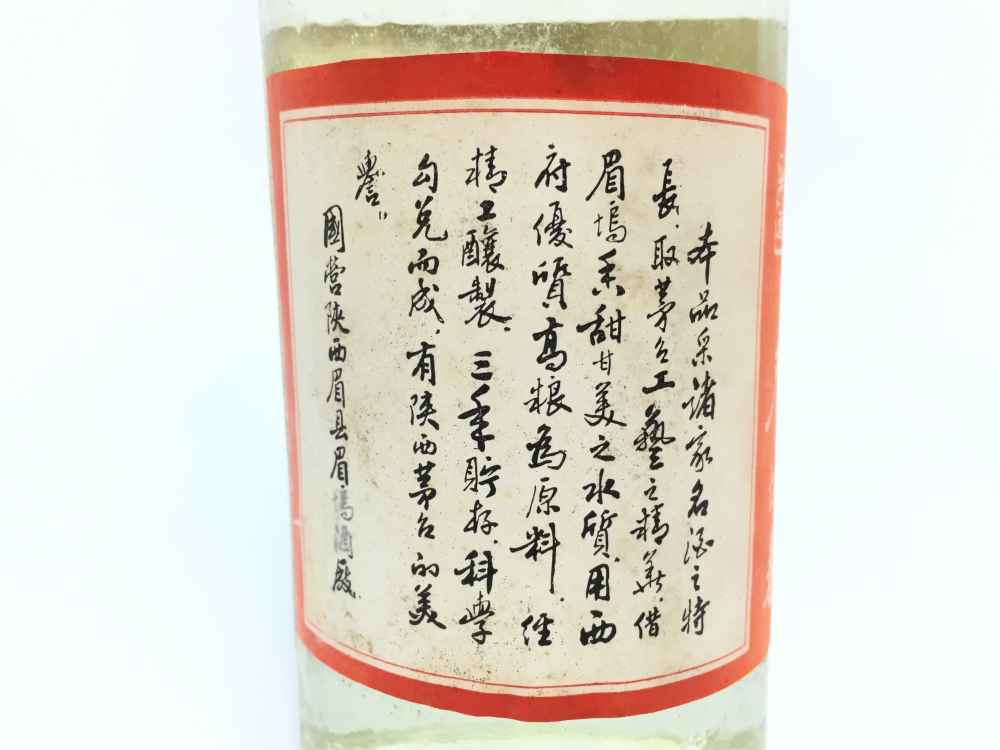 本品采诸家名酒之特
長，取茅台工藝之精華，借
眉坞香甜甘美之水質，用西
府優質高粮為原料，经
精工釀製，三年貯存，科學
勾兑而成，有陕西茅台的美
譽。
國营陕西眉县眉坞酒廠